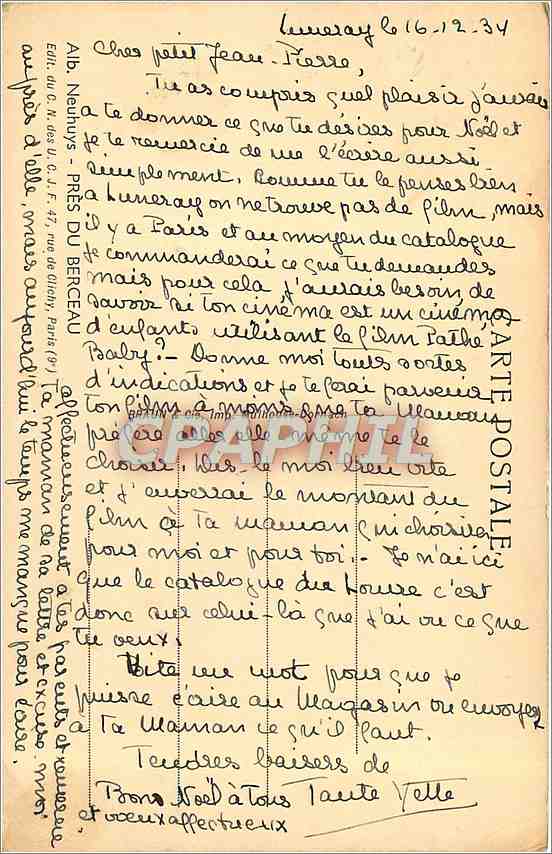 Luneray le 16-12-34
Cher petit Jean-Pierre,
Tu as compris quel plaisir j'aurais
a te donner ce que tu désires pour Noël et
je te remercie de me l'écrire aussi
simplement. Comme tu le penses bien
a Luneray on ne trouve pas de film, mais
il y a Paris et au moyen du catalogue
je commanderai ce que tu demandes
mais pour cela j'aurais besoin de
savoir si ton cinéma est un cinéma
d'enfants utilisant le film Pathé
Baby? - Donne moi toutes sortes
d'indications et je te ferai parvenir
ton film à moins que ta Maman
préfère aller elle même te le
choisir. Dis-le moi bien vite
et j'enverrai le montant du
film à ta maman qui choisira
pour moi et pour toi. - Je n'ai ici
que le catalogue du Louvre c'est
donc sur celui-là que j'ai vu ce que
tu veux.
Vite un mot pour que je
puisse écrire au Magasin ou envoyer
à Ta Maman ce qu'il faut.
Tendres baisers de
Tante Yette
Bons Noël à Tous
et voeux affectueux
affectueusement à tes parents et remercie
Ta maman de sa lettre et excuse-moi
auprès d'elle, mais aujourd'hui le temps me manque pour écrire.
Alb. Neuhuys - PRÈS DU BERCEAU
Edit. du C. N. des U. C. J. F. 47, rue de Clichy, Paris (9e)
CARTE POSTALE
BRAUN & Cie, Imp. Mulhouse-Dornach
CPAPHIL